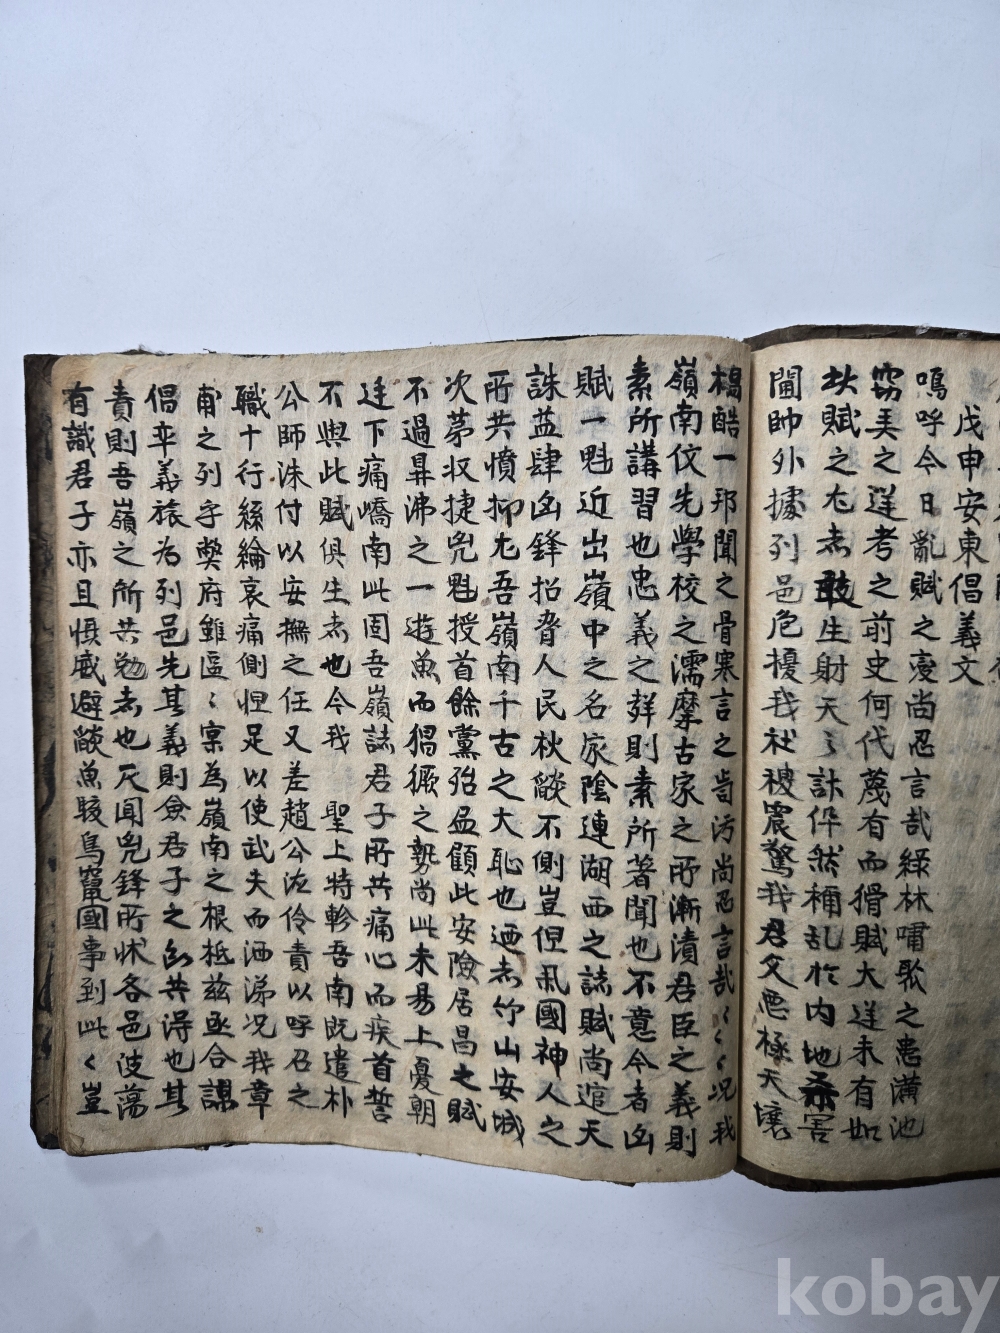 戊申安東倡義文
嗚呼今日亂賊之變尚忍言哉綠林嘯歌之患潢池
竊弄之逆考之前史何代蔑有而猾賊大逆未有如
此賊之尤者敢生射天之計伴然稱乱於内地忝害
閫帥外據列邑危擾我社被震驚我君父惡極天壤
楊酷一邦聞之骨寒言之齒污尚忍言哉〻〻〻況我
嶺南伩先學校之濡摩古家之所漸漬君臣之義則
素所講習也忠義之群則素所著聞也不意今者凶
賊一魁近出嶺中之名家陰連湖西之誌賊尚逭天
誅益肆凶鋒招脅人民秋燄不側豈但乕國神人之
所共憤抑尤吾嶺南千古之大恥也迺者竹山安城
次苐収捷兇魁授首餘黨殆孟顧此安險居昌之賊
不過鼎沸之一遊魚而猖獗之勢尚此未易上憂朝
廷下痛嶠南此固吾嶺誌君子所共痛心而疾首誓
不與此賊俱生者也今我 聖上特軫吾南既遣朴
公師洙付以安撫之任又差趙公㳓伶責以呼召之
職十行絲綸哀痛側怛足以使武夫而洒涕况我章
甫之列乎獘府雖區〻寔為嶺南之根柢茲亟合謀
倡卒義旅为列邑先其義則僉君子之㪽共淂也其
責則吾嶺之所共勉者也况聞兇鋒所怵各邑波蕩
有識君子亦且慑威避燄魚駭鳥竄國事到此〻豈
kobay